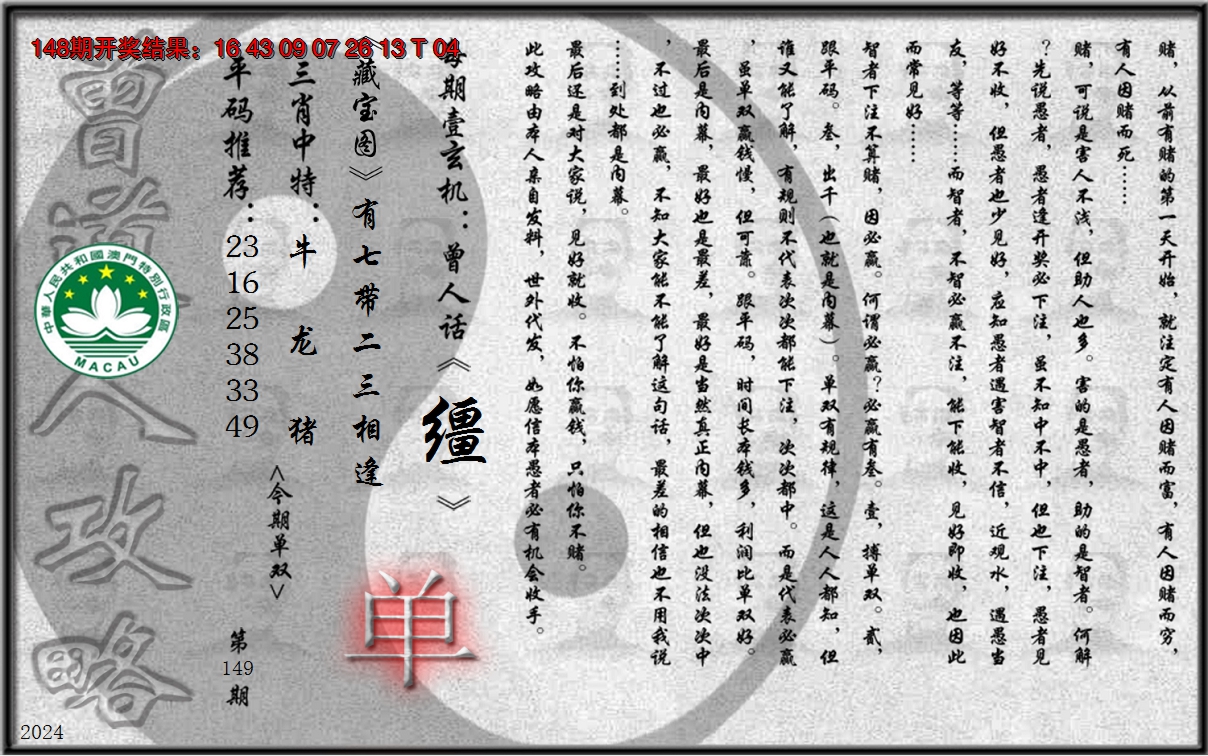 148期开奖结果：16 43 09 07 26 13 T 04
赌，从前有赌的第一天开始，就注定有人因赌而富，有人因赌而穷，
有人因赌而死……
赌，可说是害人不浅，但助人也多。害的是愚者，助的是智者。何解
？先说愚者，愚者逢开奖必下注，虽不知中不中，但也下注，愚者见
好不收，但愚者也少见好，应知愚者遇害智者不信，近观水，遇愚当
友，等等……而智者，不智必赢不注，能下能收，见好即收，也因此
而常见好……
智者下注不算赌，因必赢。何谓必赢？必赢有叁。壹，搏单双。贰，
跟平码。叁，出千（也就是内幕）。单双有规律，这是人人都知，但
谁又能了解，有规则不代表次次都能下注，次次都中。而是代表必赢
，虽单双赢钱慢，但可靠。跟平码，时间长本钱多，利润比单双好。
最后是内幕，最好也是最差，最好是当然真正内幕，但也没法次次中
，不过也必赢，不知大家能不能了解这句话，最差的相信也不用我说
……到处都是内幕。
最后还是对大家说，见好就收。不怕你赢钱，只怕你不赌。
此攻略由本人亲自发料，世外代发，如愿信本愚者必有机会收手。
每期壹玄机：曾人话《缰》
《藏宝图》有七带二三相逢
单
三肖中特：牛 龙 猪
<今期单双>
平码推荐：
23
16
25
38
33
49
第
149
期
曾道人攻略
中華人民共和國澳門特別行政區
MACAU
2024